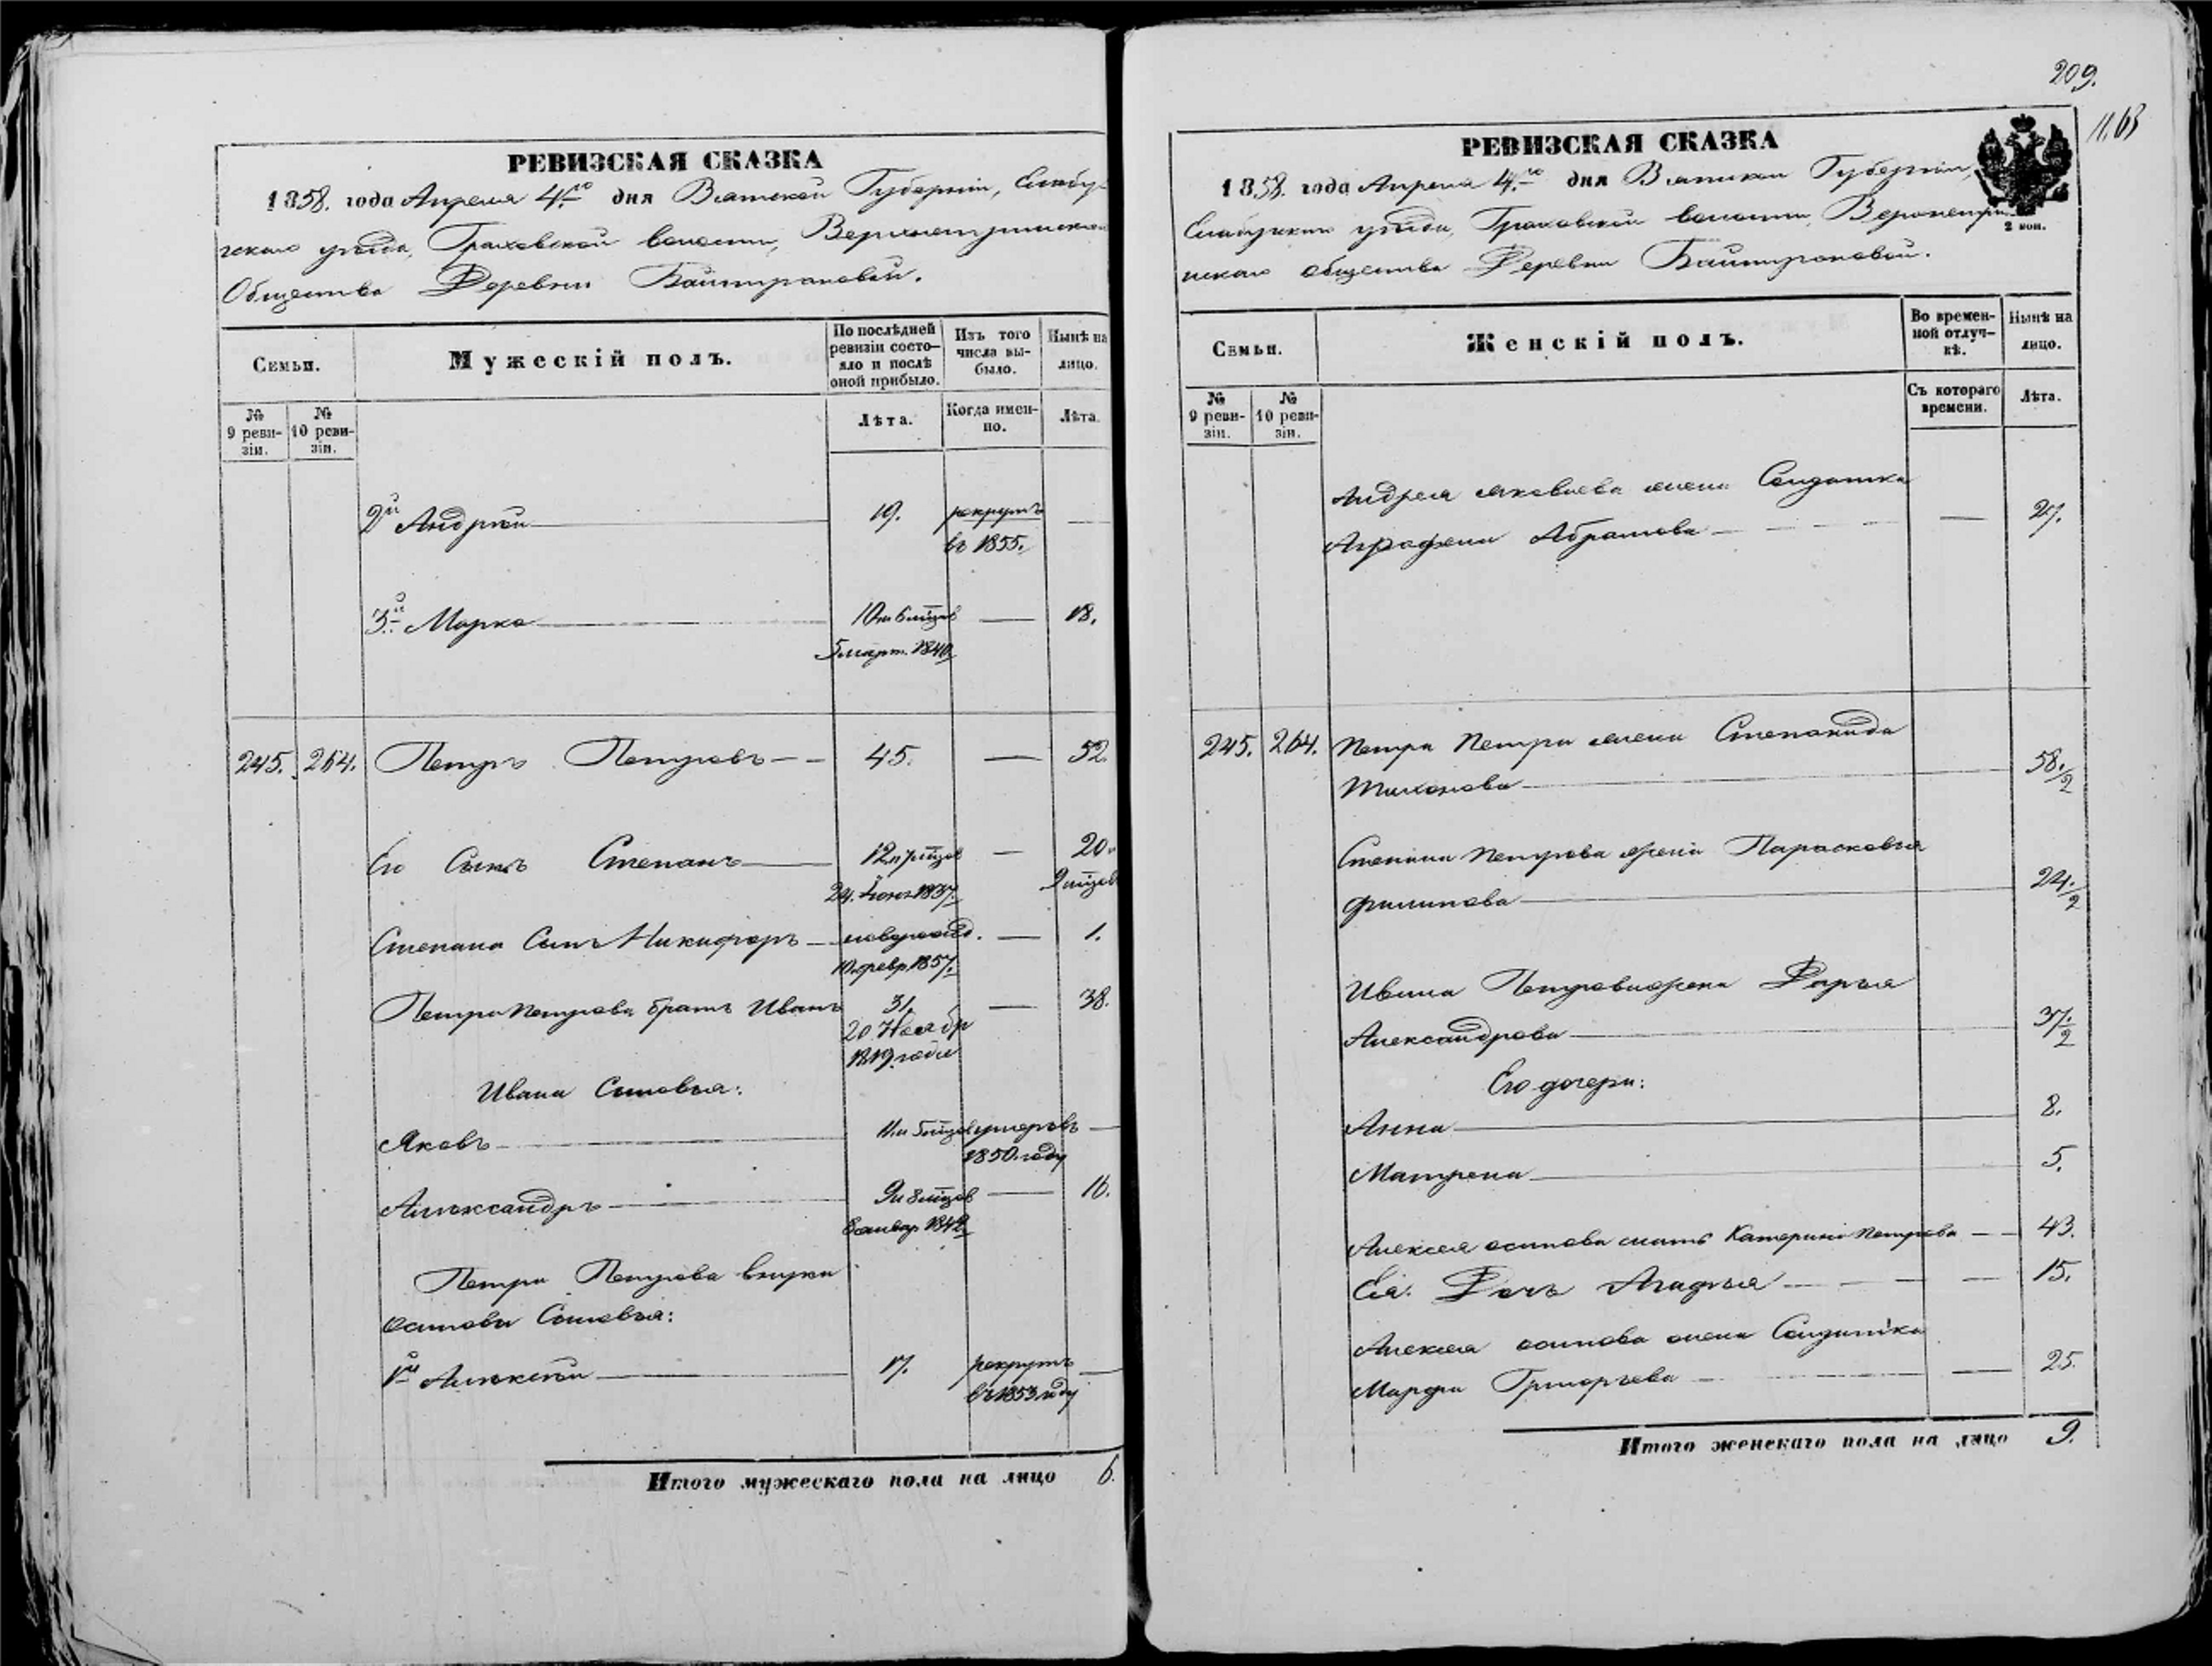 РЕВИЗСКАЯ СКАЗКА
1858. года Апреля 4.го дня Вятской Губерніи, Елабу-
гскаго уѣзда, Граховской волости,
Общества Деревни Баитрановой.
Семьи.
Мужескій полъ.
По послѣдней ревизіи состо-яло и послѣ оной прибыло.
Изъ того числа вы-было.
Нынѣ на лицо.
№ 9 реви-зіи.
№ 10 реви-зіи.
Лѣта.
Когда имен-но.
Лѣта.
2й Андрѣй 19. рекрутъ
въ 1855.
3й Марко 10 и 6 мѣцов 18.
5 март. 1840
245. 264. Петръ Петровъ 45. 52.
Его Сынъ Степанъ 12 и 7 мѣцов 20.
24. Іюня 1837. 9 мѣцов
Степана Сынъ Никифоръ новорожд. 1.
10 февр. 1857.
Петра Петрова братъ Иванъ 31, 38.
20 Ноябр
1819 года
Ивана Сыновья:
Яковъ 11. и 5 мѣцов умеръ въ
1850. году
Александръ 9 и 8 мѣцов 16.
8 январ. 1842
Петра Петрова внуки
осипови Сыновья:
1й Алексѣй 17. рекрутъ
въ 1853 году
Итого мужескаго пола на лицо 6.
209.
11.63
РЕВИЗСКАЯ СКАЗКА
1858. года Апреля 4.го дня Вятской Губерніи,
Елабугскаго уѣзда, Граховской волости
скаго общества Деревни Баитрановой.
2 коп.
Семьи.
Женскій полъ.
Во времен-ной отлуч-кѣ.
Нынѣ на лицо.
№ 9 реви-зіи.
№ 10 реви-зіи.
Съ котораго времени.
Лѣта.
Андрея яковлева жена Солдатка
Аграфена Абрамова 27.
245. 264. Петра Петра жена Степанида
Тихонова 58./2
Степана Петрова жена Парасковья
филипова 24./2
Ивана Петрова жена Дарья
Александрова 37./2
Его дочери:
Анна 8.
Матрена 5.
Алексея осипова мать Катерина Петрова 43.
Ея. Дочь Агафья 15.
Алексея осипова жена Солдатка
Марфа Григорьева 25.
Итого женскаго пола на лицо 9.